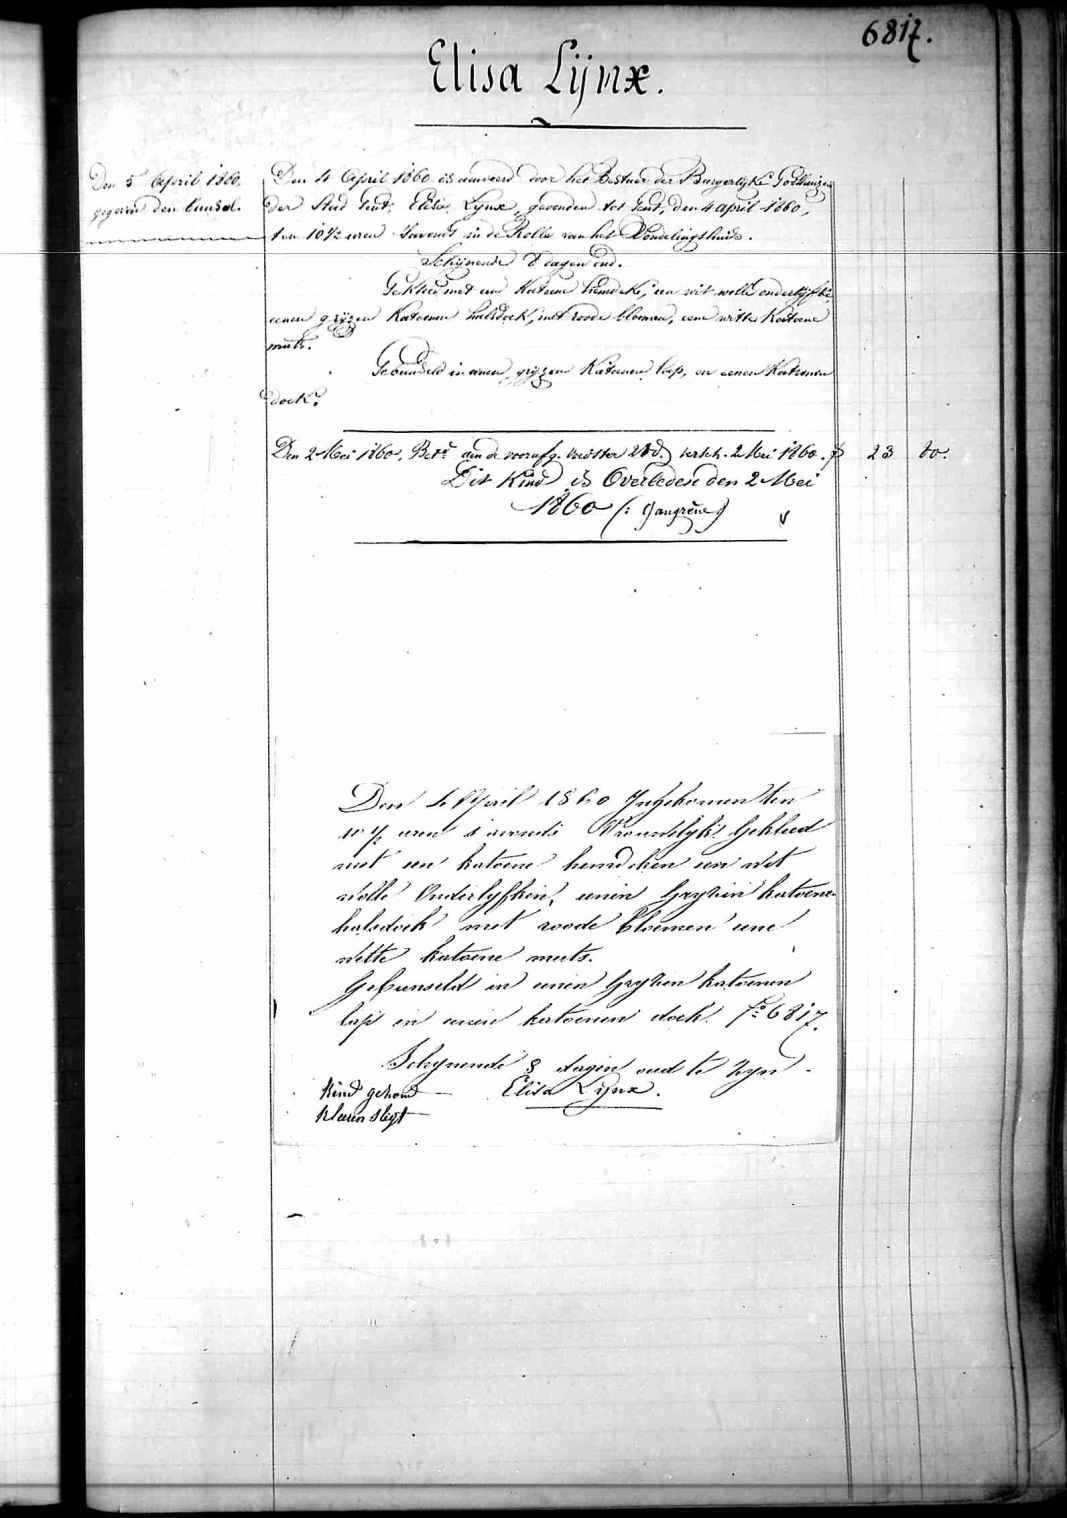 6817.
Elisa Lijnx.
Den 5 April 1860.
gegeven den bunsel.
Den 4 April 1860 is aanveerd door het Bestuer der Burgerlyke Godshuizen
der Stad Gent, Elisa Lynx, gevonden tot Gent, den 4 april 1860,
ten 10 1/2 uren 's avonds in de Rolle van het Vondelingshuis.
Schijnende 8 dagen oud.
Gekleed met een Katoene hemdeke, een wit wolle onderlijfke,
eenen grijzen Katoenen halsdoek, met roode bloemen, eene witte Katoene
muts.
Gebunseld in eenen grijzen Katoenen lap, en eenen Katoenen
doek.
Den 2 Mei 1860. Bet. aan de voedster 28 d. 2 Mei 1860. f 23 80.
Dit Kind is Overleden den 2 Mei
1860 (: Gangrène)
Den 4 April 1860 Ingekomen ten
10 1/2 uren s'avonds Vrouwelyk Gekleed
met een katoene hemdeken een wit
wolle Onderlyfken, eenen Gryzen katoene
halsdoek met roode bloemen eene
witte katoene muts.
Gebunseld in eenen Gryzen katoenen
lap en eenen katoenen doek. fo 6817.
Schynende 8 dagen oud te zyn.
Kind gezond
Kleeren slegt
Elisa Lijnx.